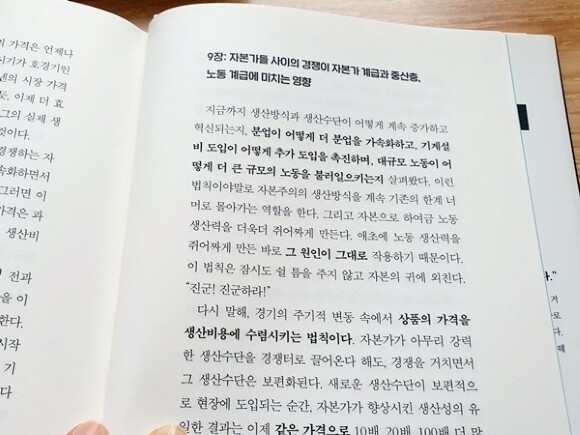 의 가격은 언제나
시기가 호경기인
시장 가격
이제 더 효
그의 실제 생
것이다.
경쟁하는 자
속화하면서
그러면 이
가격은 과
생산비
전과
을 이
한다.
시작
기
다
9장: 자본가들 사이의 경쟁이 자본가 계급과 중산층,
노동 계급에 미치는 영향
지금까지 생산방식과 생산수단이 어떻게 계속 증가하고
혁신되는지, 분업이 어떻게 더 분업을 가속화하고, 기계설
비 도입이 어떻게 추가 도입을 촉진하며, 대규모 노동이 어
떻게 더 큰 규모의 노동을 불러일으키는지 살펴봤다. 이런
법칙이야말로 자본주의의 생산방식을 계속 기존의 한계 너
머로 몰아가는 역할을 한다. 그리고 자본으로 하여금 노동
생산력을 더욱더 쥐어짜게 만든다. 애초에 노동 생산력을
쥐어짜게 만든 바로 그 원인이 그대로 작용하기 때문이다.
이 법칙은 잠시도 쉴 틈을 주지 않고 자본의 귀에 외친다.
“진군! 진군하라!”
다시 말해, 경기의 주기적 변동 속에서 상품의 가격을
생산비용에 수렴시키는 법칙이다. 자본가가 아무리 강력
한 생산수단을 경쟁터로 끌어온다 해도, 경쟁을 거치면서
그 생산수단은 보편화된다. 새로운 생산수단이 보편적으
로 현장에 도입되는 순간, 자본가가 향상시킨 생산성의 유
일한 결과는 이제 같은 가격으로 10배, 20배, 100배 더 많
다.”
거
로
득